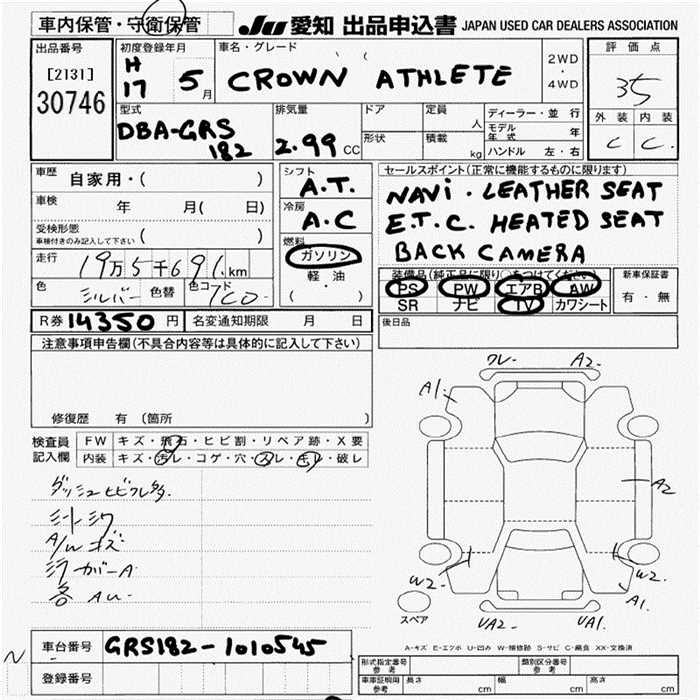 車内保管・守衛保管
JU 愛知 出品申込書 JAPAN USED CAR DEALERS ASSOCIATION
出品番号
[2131]
30746
初度登録年月
H
17 5月
車名・グレード
CROWN ATHLETE
2WD
・
4WD
評価点
35
外装 内装
C C
型式
DBA-GRS
182
排気量
2.99 CC
ドア
定員
人
形状
積載
kg
ディーラー・並行
モデル年式 年
ハンドル 左・右
車歴
自家用・( )
車検 年 月( 日)
受検形態
車検付きのみ記入して下さい ( )
走行 19万5千691km
色 シルバー 色替 色コード 7C0
シフト
A.T.
冷房
A.C
燃料
ガソリン
軽・油
( ・ )
セールスポイント(正常に機能するものに限ります)
NAVI・LEATHER SEAT
E.T.C. HEATED SEAT
BACK CAMERA
装備品(純正品に限り○をつけてください)
PS PW エアB AW
SR ナビ TV カワシート
新車保証書
有・無
R券 14350円 名変通知期限 月 日
後日品
注意事項申告欄(不具合内容等は具体的に記入して下さい)
修復歴 有 (箇所 )
検査員
記入欄
FW キズ・飛石・ヒビ割・リペア跡・X要
内装 キズ・汚レ・コゲ・穴・スレ・キレ・破レ
ダッシュヒビワレ多.
シートシワ
A/wキズ
各 AU-
ワレ- A2-
A1-
A2
W2-
W2-
A1
UA2- UA1-
スペア
A-キズ E-エクボ U-凹み W-補修跡 S-サビ C-腐食 XX-交換済
N
車台番号 GRS182-1010545
登録番号
形式指定番号
参考
類別区分番号
参考
車庫証明用
参考
長さ cm 幅 cm 高さ cm